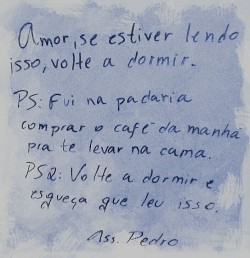 Amor, se estiver lendo
isso, volte a dormir.
PS: Fui na padaria
comprar o café da manhã
pra te levar na cama.
PS2: Volte a dormir e
esqueça que leu isso.
Ass. Pedro